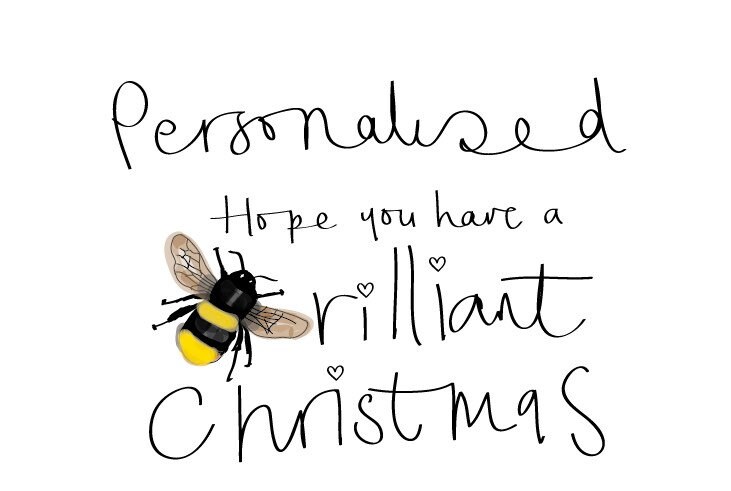 Personalised
Hope you have a
rilliant
Christmas